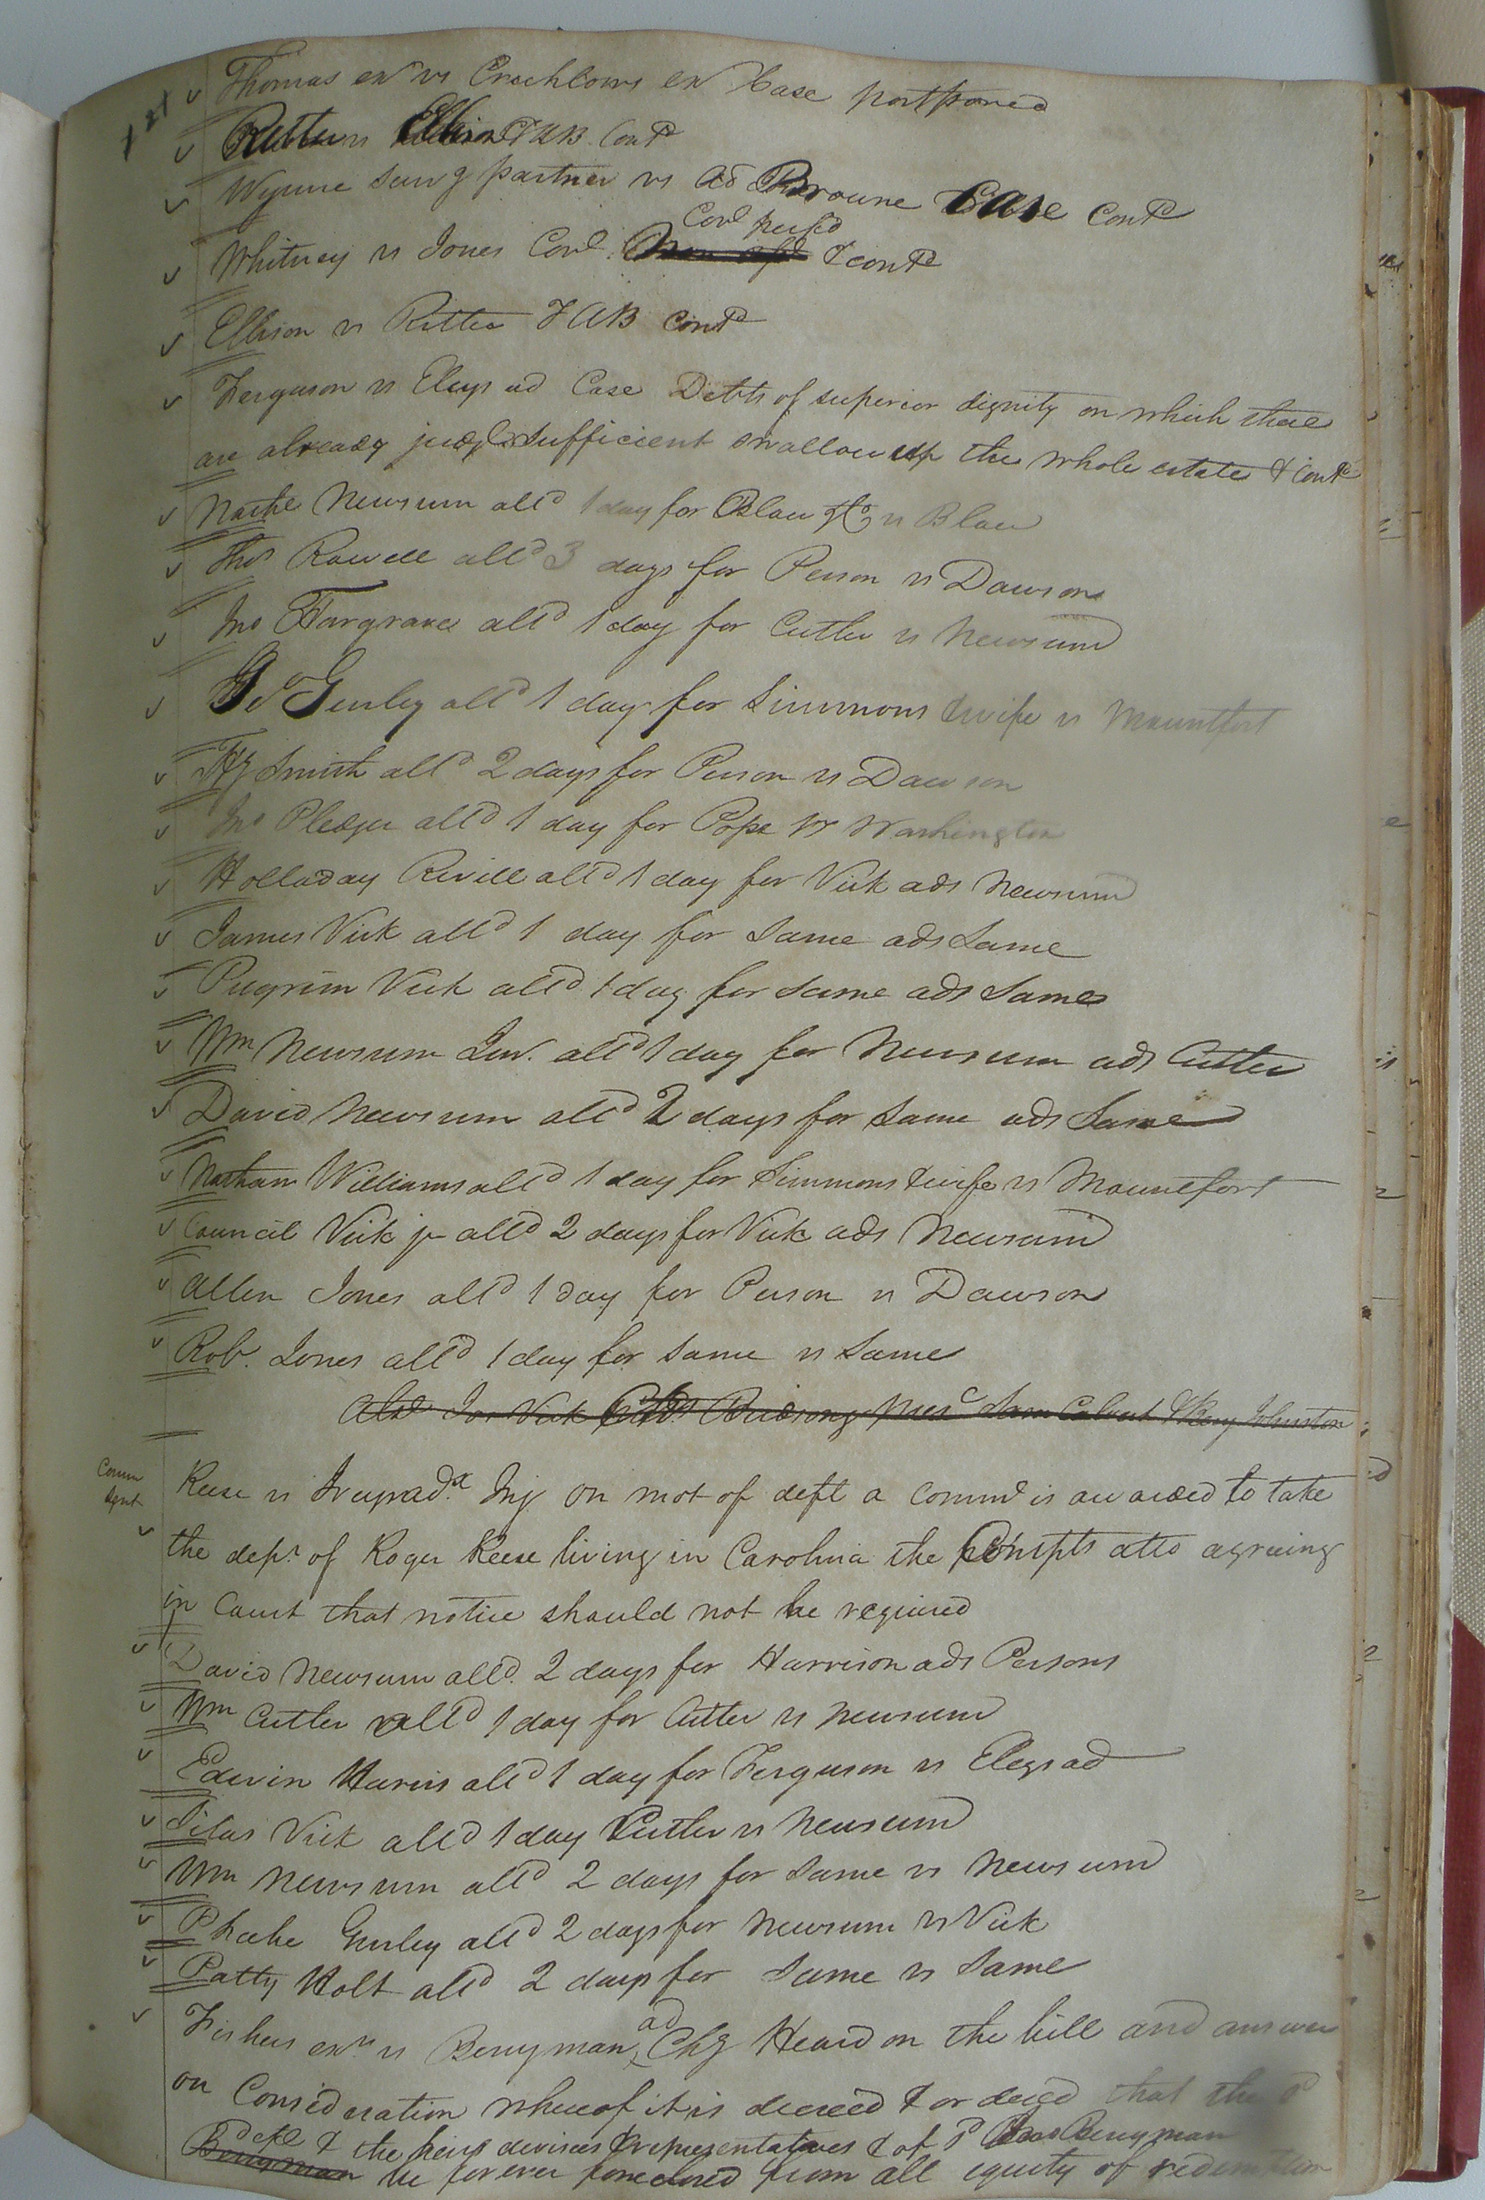 121
Thomas exr vs Crichlows ex Case postponed
Ritter vs Ellison TAB Contd
Wynne survg partner vs ad Browne Case Contd
Whitney vs Jones Covt Covt perfd & contd
Ellison vs Ritter TAB Contd
Ferguson vs Eleys ad Case Debts of superior dignity on which there
are already judgts sufficient swallow up the whole estate & contd
Nathl Newsum alld 1 day for Blow &c vs Blow
Thos Rowell alld 3 days for Person vs Dawson
Jno Hargrave alld 1 day for Cutler vs Newsum
Jo Gurley alld 1 day for Simmons & wife vs Mountfort
Smith alld 2 days for Person vs Dawson
Jno Pledger alld 1 day for Pope vs Washington
Holladay Revill alld 1 day for Vick ads Newsum
James Vick alld 1 day for Same ads Same
Pilgrim Vick alld 1 day for Same ads Same
Wm Newsum Junr. alld 1 day for Newsum ads Cutler
David Newsum alld 2 days for Same ads Same
Nathan Williams alld 1 day for Simmons & wife vs Mountfort
Council Vick jr alld 2 days for Vick ads Newsum
Allen Jones alld 1 day for Person vs Dawson
Rob. Jones alld 1 day for Same vs Same
Jos Vick Birdsong Sam Calvert & Johnston
Comm
Reese vs adx Inj on mot of deft a commn is awarded to take
the depn of Roger Reese living in Carolina the compts atto agreeing
in Court that notice should not be required
David Newsum alld. 2 days for Harrison ads Persons
Wm Cutler alld 1 day for Cutler vs Newsum
Edwin Harris alld 1 day for Ferguson vs Eleys ad
Silas Vick alld 1 day Cutler vs Newsum
Wm Newsum alld 2 days for Same vs Newsum
Phoebe Gurley alld 2 days for Newsum vs Vick
Patty Holt alld 2 days for Same vs Same
Fishers exrs vs Berryman ad Chy Heard on the bill and answer
on Consideration whereof it is decreed & ordered that the sd
deft & the heirs devisees & representatives & of sd Berryman
Berryman be forever foreclosed from all equity of redemption